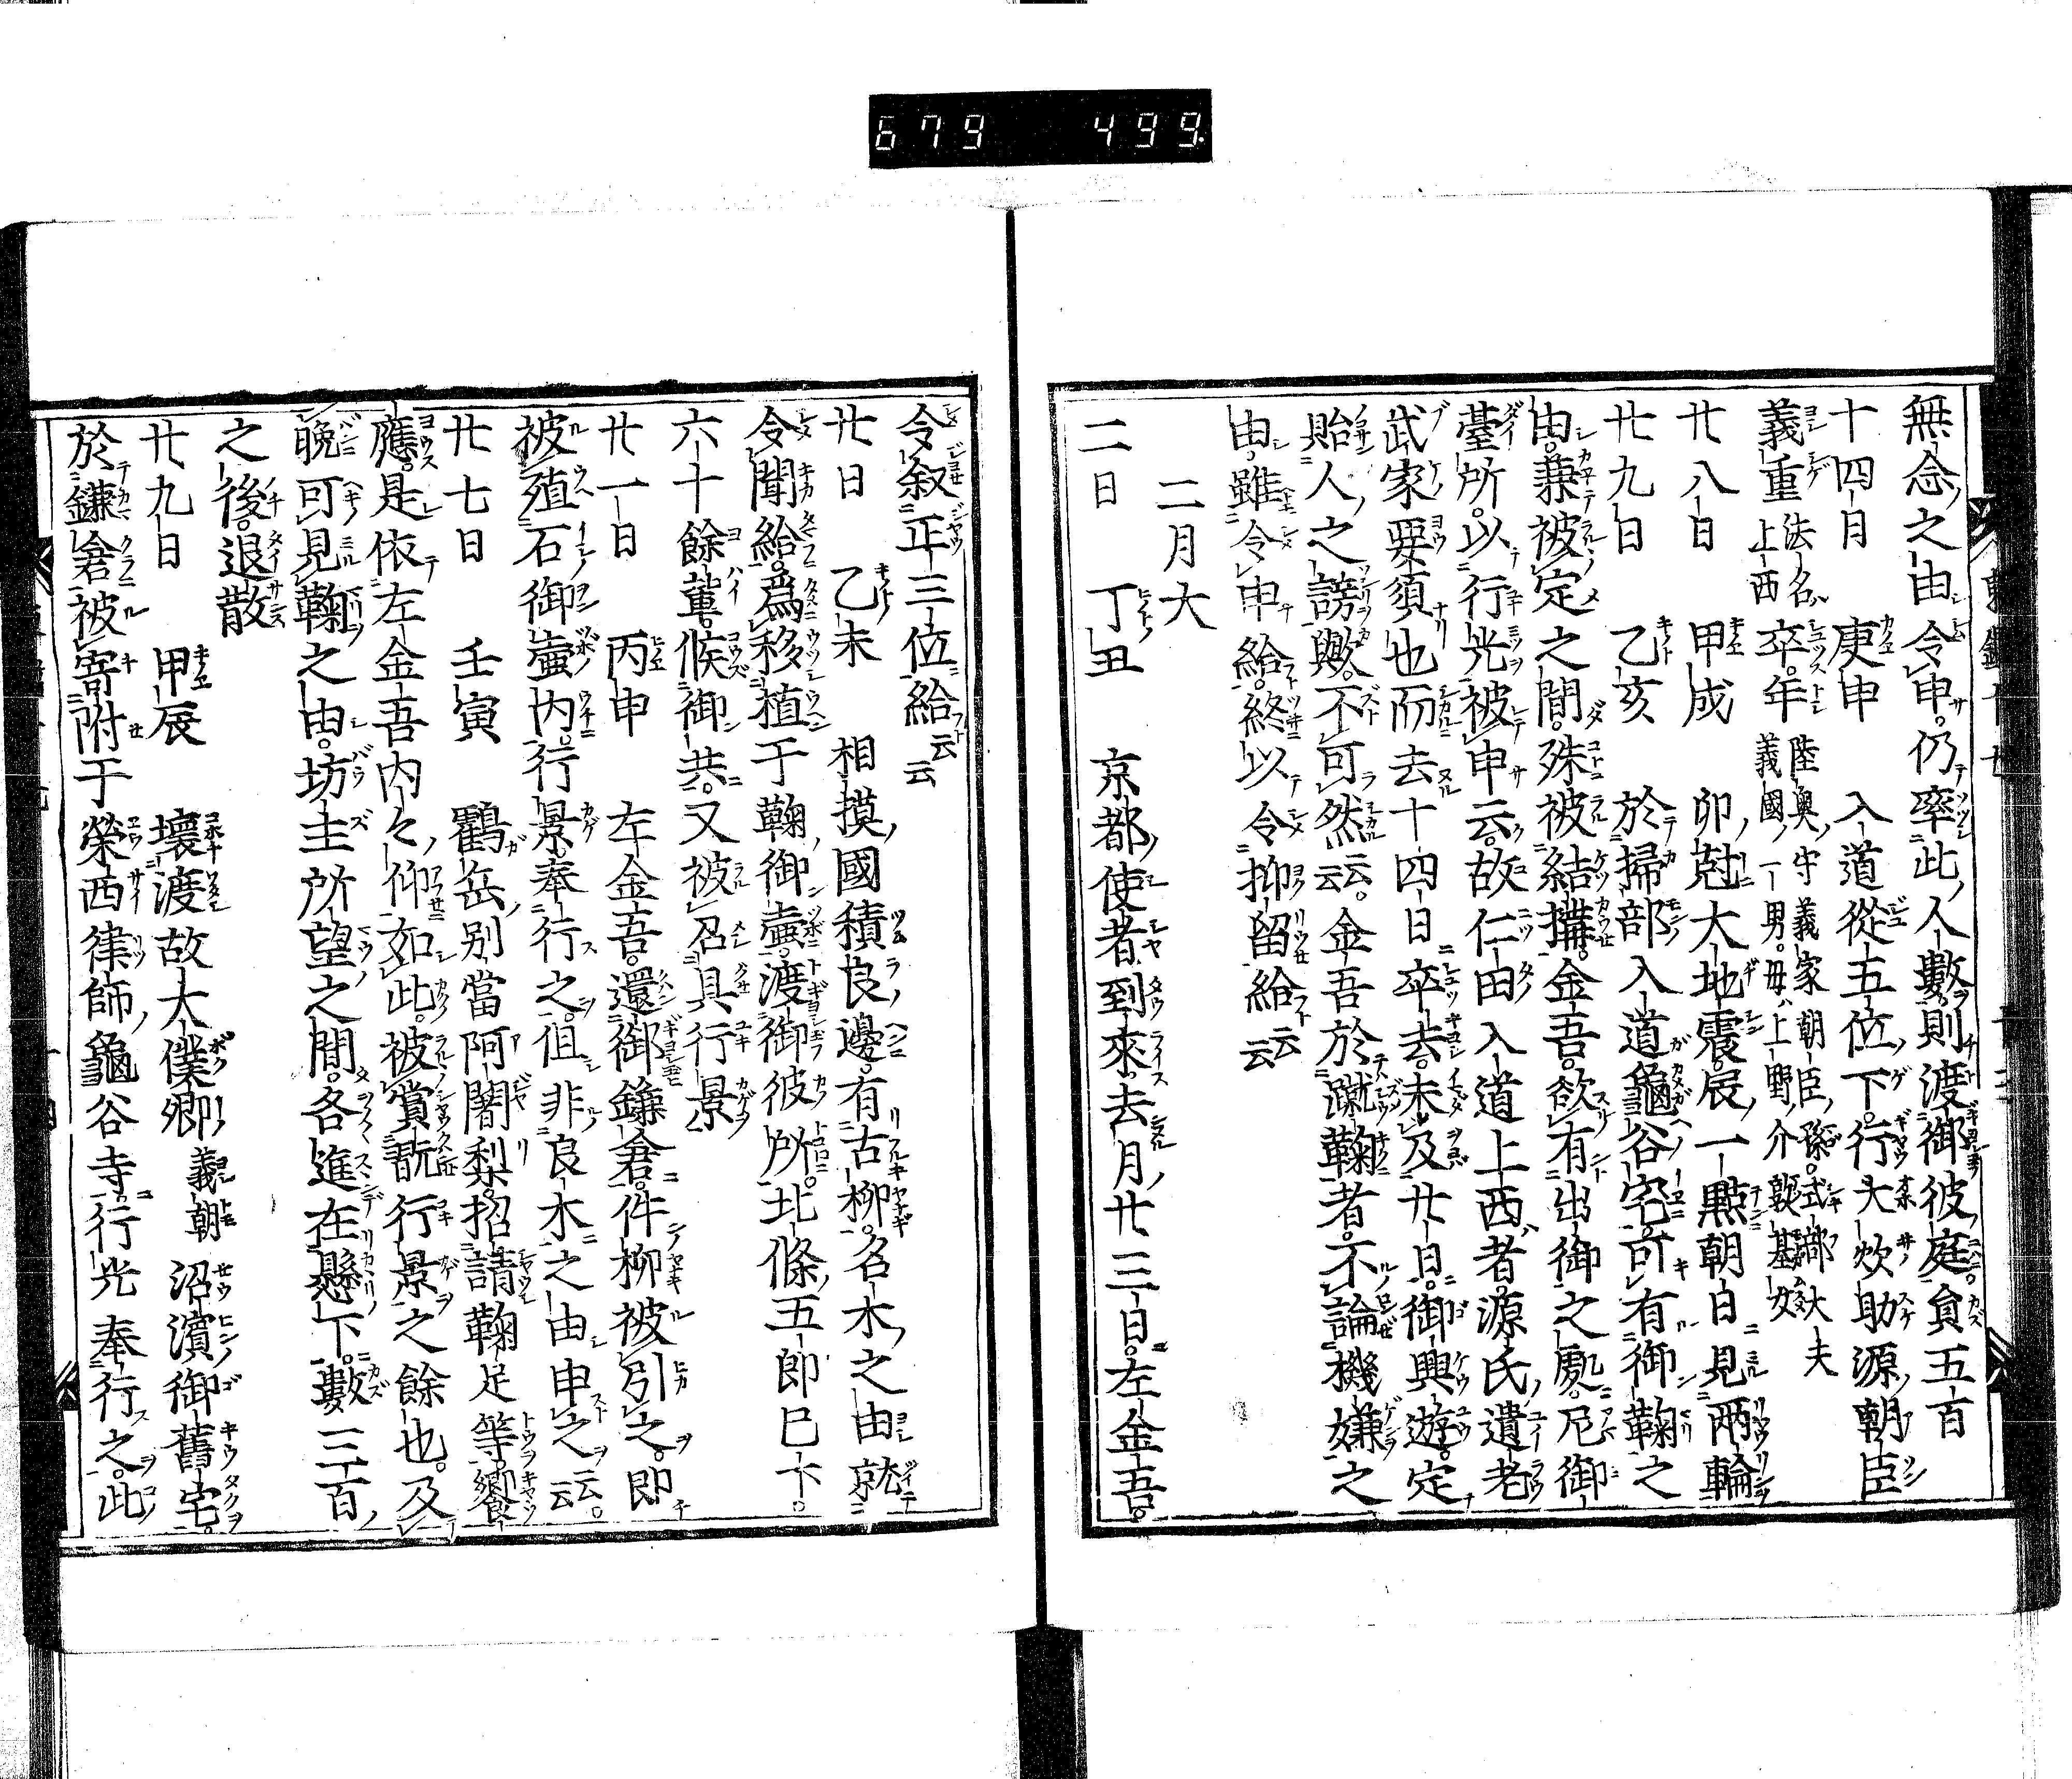 679 499
無念之由令申。仍率此人數。則渡御彼庭。貟五百
十四日 庚申 入道從五位下。行大炊助源朝臣
義重 法名上西 卒。年 陸奥守義家朝臣孫。式部大夫義國一男。毋上野介敦基女
廿八日 甲戌 卯尅大地震。辰一點朝日見兩輪
廿九日 乙亥 於掃部入道龜谷宅。可有御鞠之
由。兼被定之間。殊被結搆。金吾。欲有出御之處。尼御
臺所。以行光被申云。故仁田入道上西者。源氏遺老
武家要須也。而去十四日卒去。未及廿日。御興遊。定
貽人之謗歟。不可然云云。金吾於蹴鞠者。不論機嫌之
由。雖令申給。終以令抑留給云云
二月大
二日 丁丑 京都使者到來。去月廿三日。左金吾。
令叙正三位給云云
廿日 乙未 相摸國積良邊。有古柳。名木之由就京
令聞給。爲移植于鞠御壷。渡御彼所。北條五郎已下。
六十餘輩。候御共。又被召具行景
廿一日 丙申 左金吾。還御鎌倉。件柳被引之。即
被殖石御壷内。行景奉行之。但非良木之由申之云云。
廿七日 壬寅 鸛岳別當阿闍梨。招請鞠足等。饗
應。是依左金吾内々仰如此。被賞翫行景之餘也。及
晩可見鞠之由。坊主所望之間。各進在懸下。數三百
之後。退散
廿九日 甲辰 壞渡故大僕卿 義朝 沼濱御舊宅。
於鎌倉。被寄附于榮西律師龜谷寺。行光奉行之。此